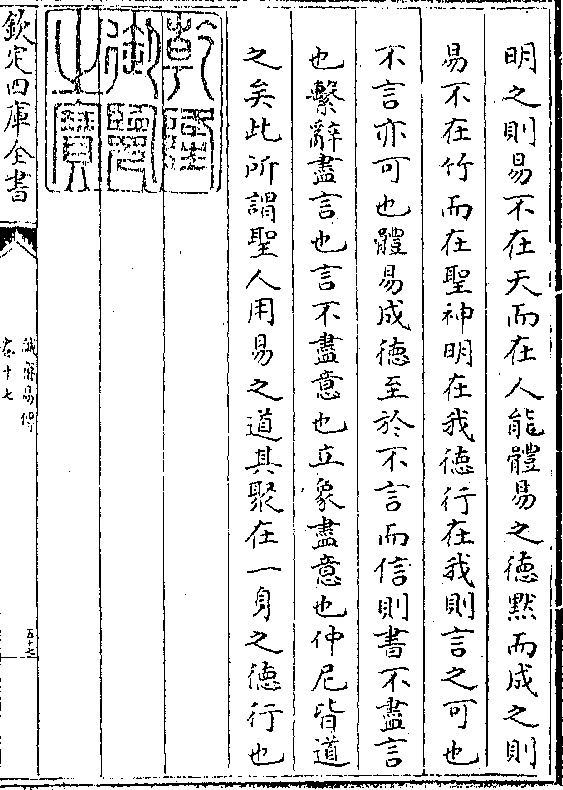 明之則易不在天而在人能體易之徳黙而成之則
易不在竹而在聖神明在我徳行在我則言之可也
不言亦可也體易成徳至於不言而信則書不盡言
也繫辭盡言也言不盡意也立象盡意也仲尼皆道
之矣此所謂聖人用易之道其聚在一身之徳行也
乾隆
御覽
之寶
欽定四庫全書
誠齋易傳
卷十七
五十七